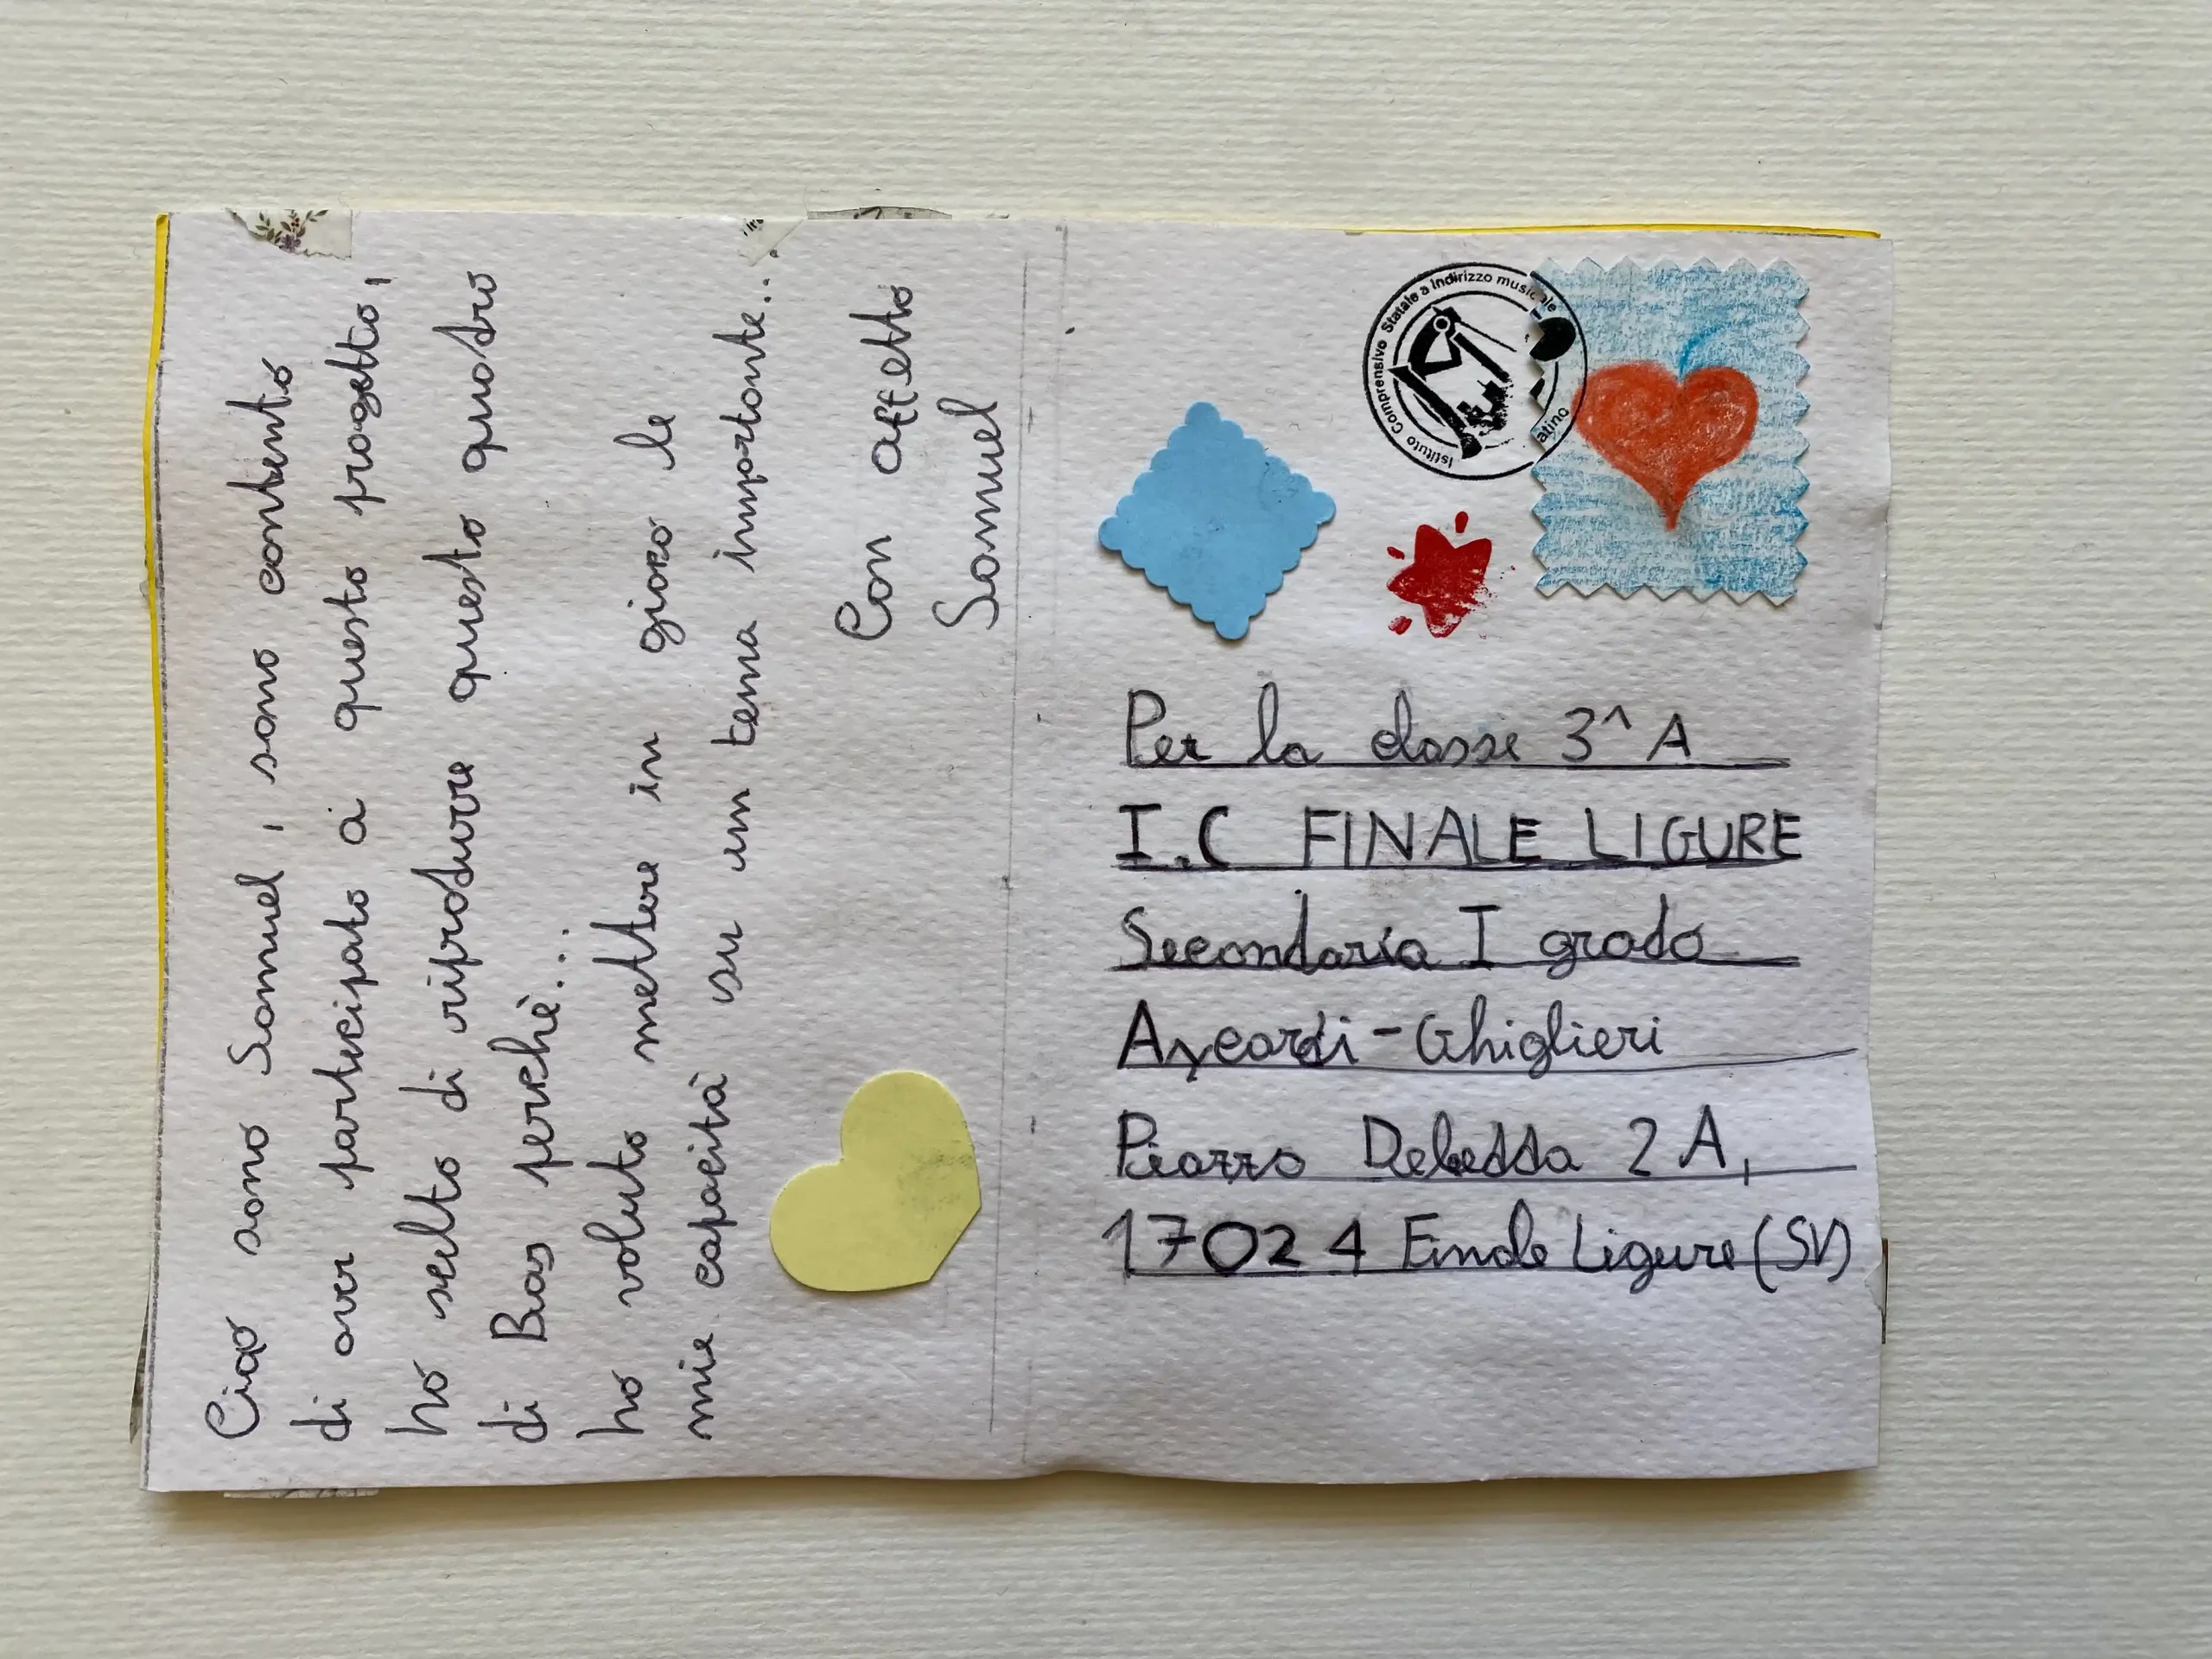 Ciao sono Samuel, sono contento
di aver partecipato a questo progetto,
ho scelto di riprodurre questo quadro
di Bas perchè...
ho voluto mettere in gioco le
mie capacità su un tema importante...
Con affetto
Samuel
Istituto Comprensivo Statale a Indirizzo musicale
atino
Per la classe 3^A
I.C FINALE LIGURE
Secondaria I grado
Aycardi-Ghiglieri
Piazza Debedda 2A,
17024 Finale Ligure (SV)